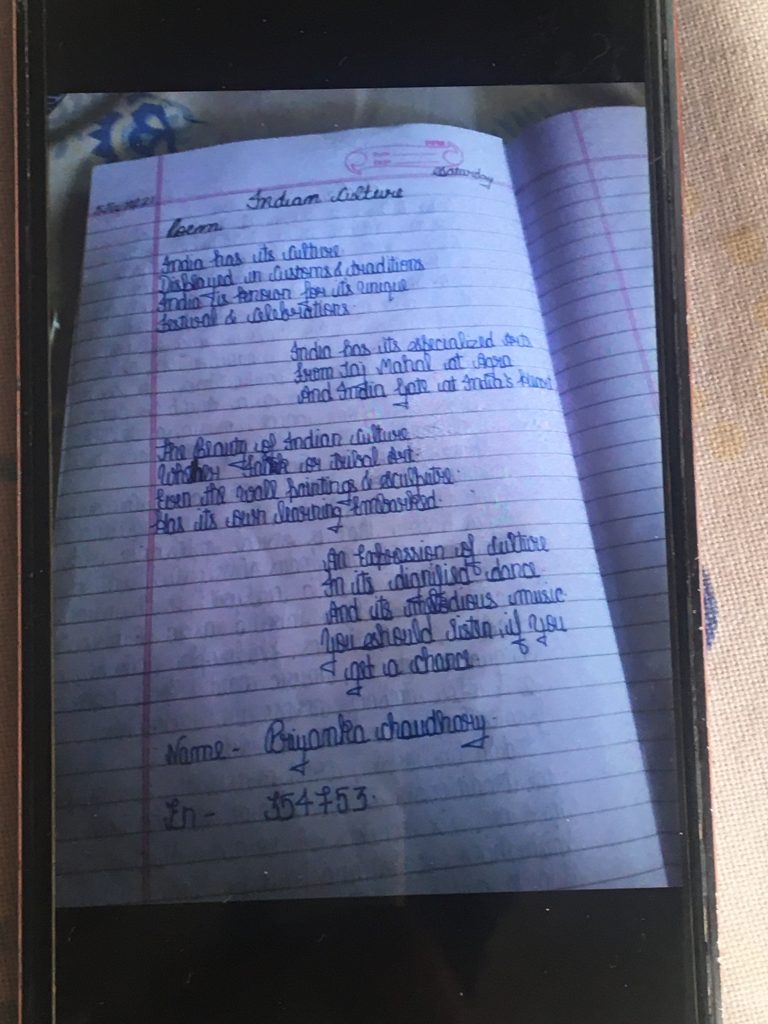 Saturday
Indian Culture
Poem
India has its culture
Displayed in Customs & traditions
India is for its unique
festival & celebrations.
India has its specialized arts
from Taj Mahal at Agra
And India Gate at India's
The Beauty of Indian Culture
Whether or tribal Art.
Even the wall paintings & sculpture.
Has its own Embarked.
An Expression of culture
In its dance
And its music
You should listen, if you
get a chance.
Name - Priyanka Chaudhary.
En - 354753.